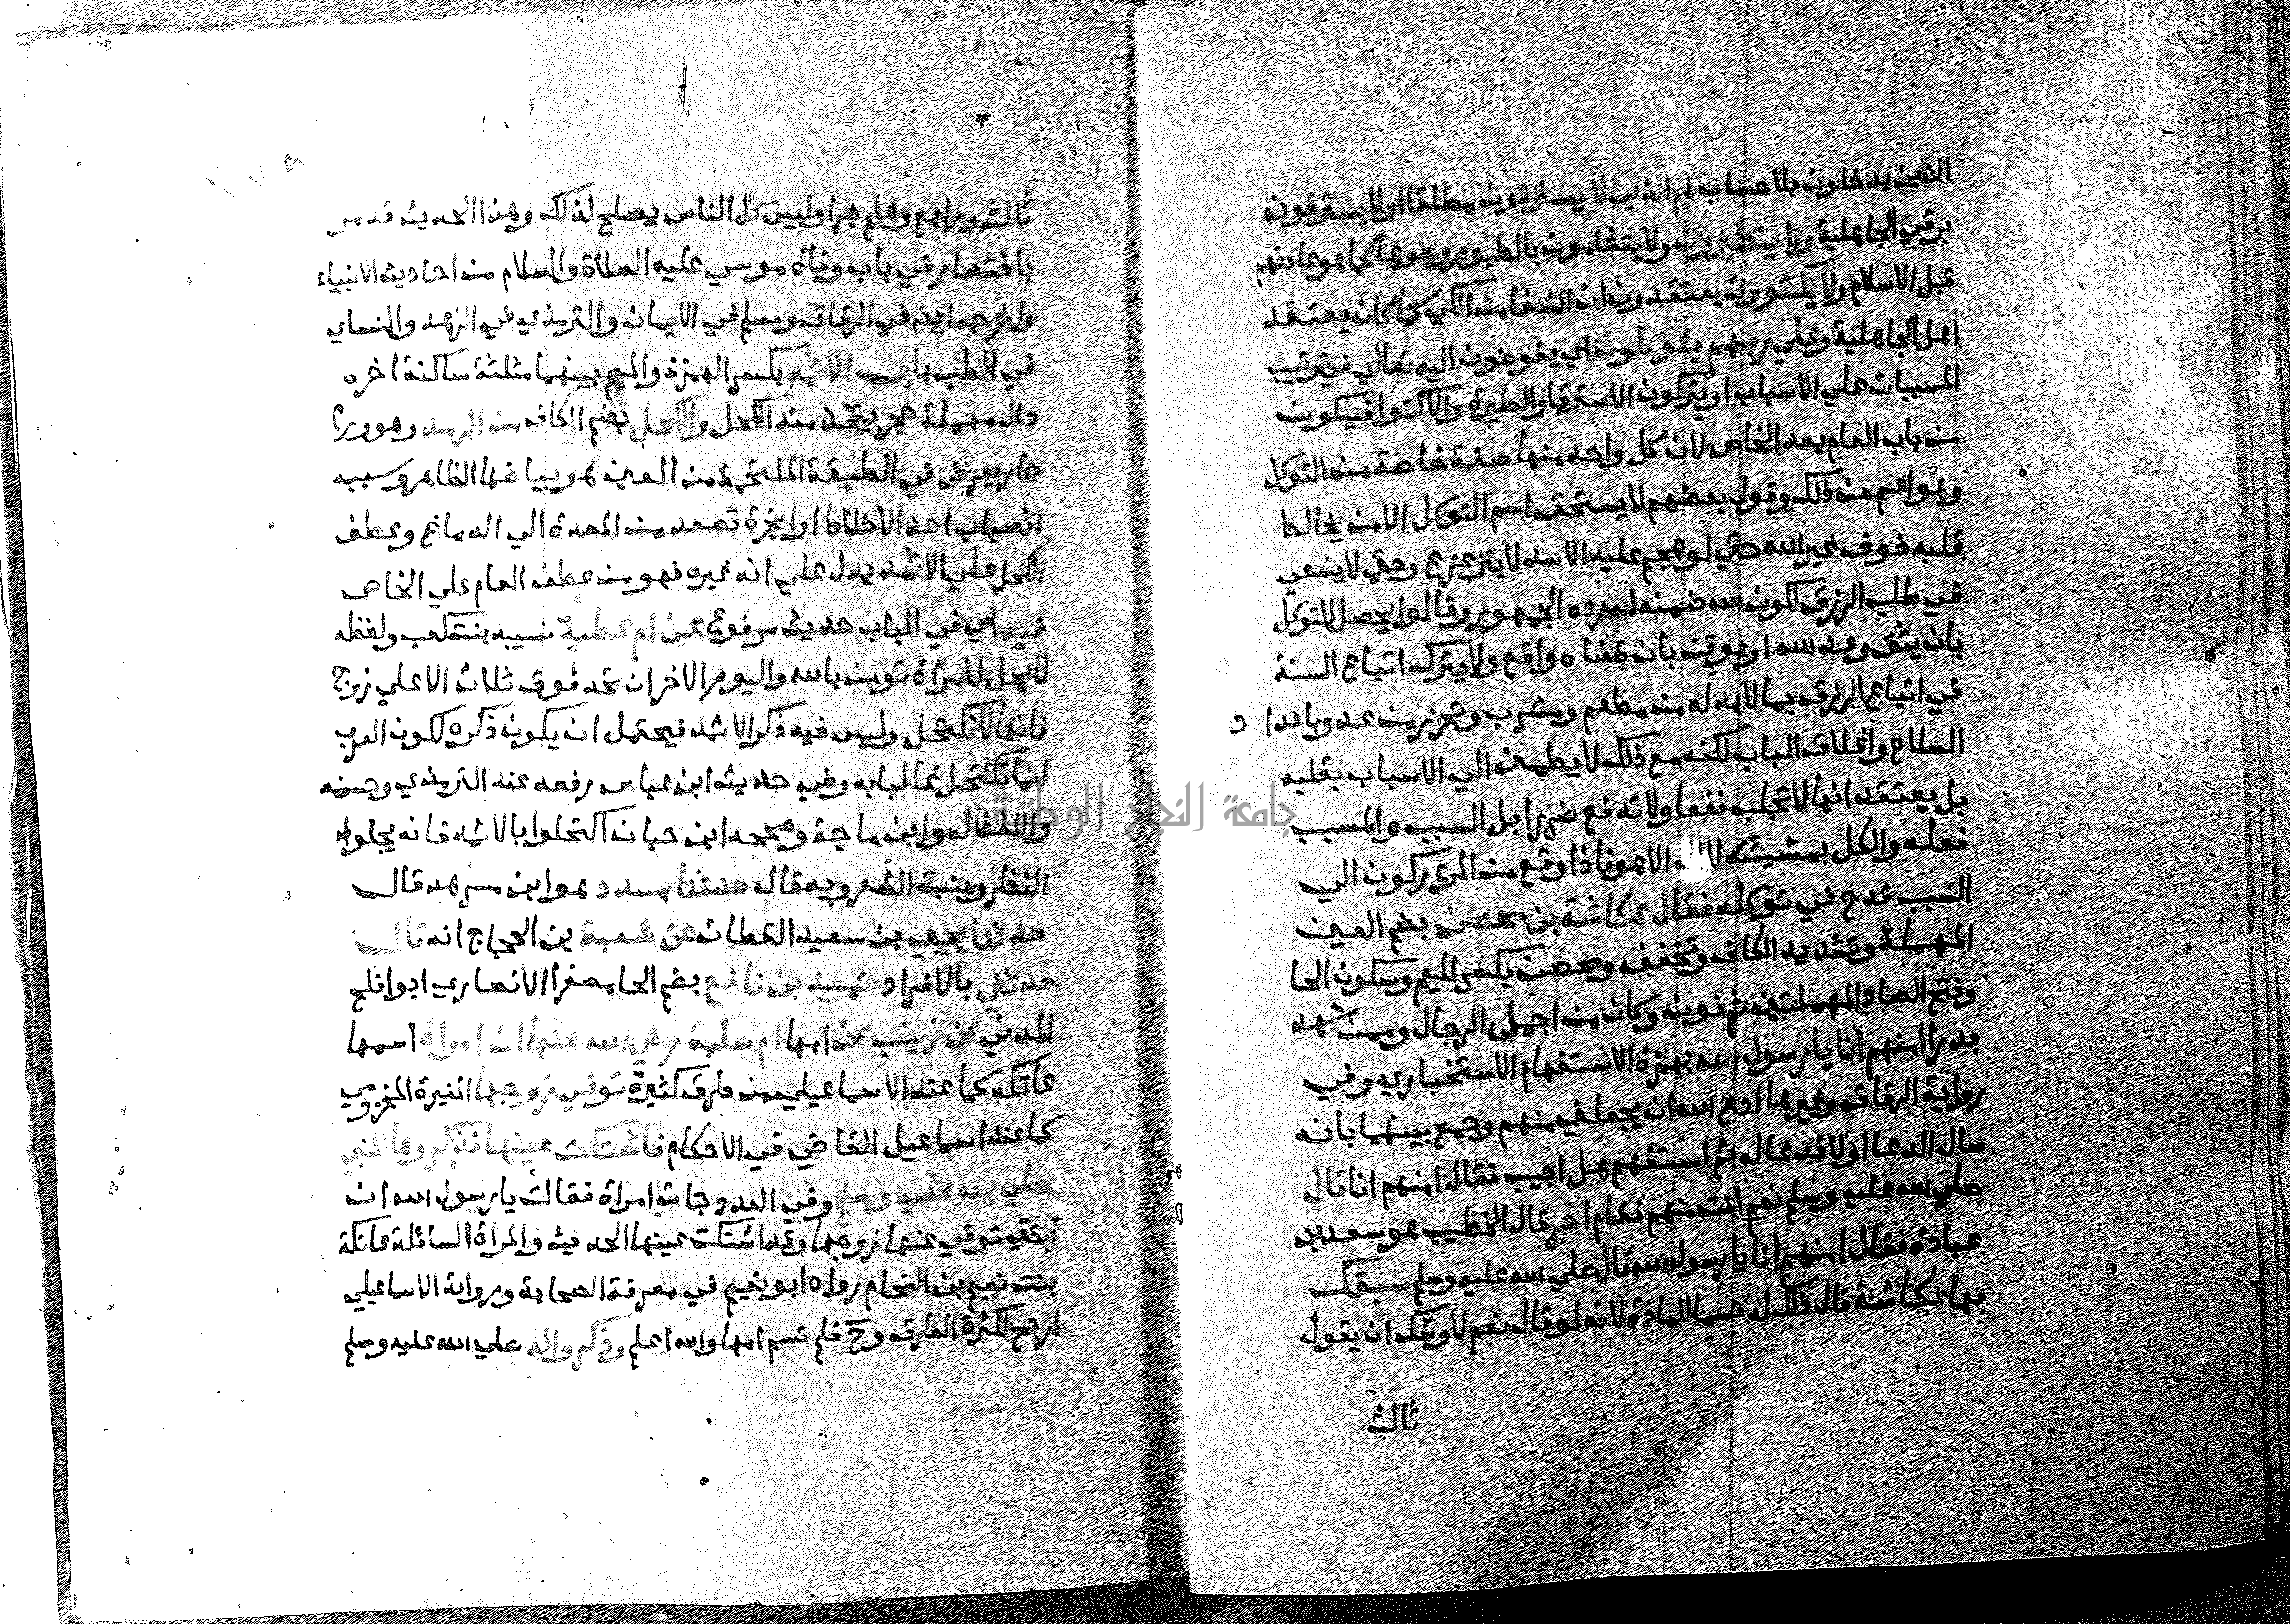 الذين يدخلون بلا حساب هم الذين لا يسترقون مطلقا او لا يسترقون
برقي الجاهلية ولا يتطيرون ولا يتشامون بالطيور ونحوها كما هو عادتهم
قبل الاسلام ولا يكتوون يعتقدون ان الشفا من الكي كما كان يعتقد
اهل الجاهلية وعلي ربهم يتوكلون اي يفوضون اليه تعالي في ترتيب
المسببات علي الاسباب او يتركون الاسترقا والطيرة والاكتوا فيكون
من باب العام بعد الخاص لان كل واحد منها صفة خاصة من التوكل
وهو اعم من ذلك وقول بعضهم لا يستحق اسم التوكل الا من يخالط
قلبه خوف غير الله حتي لو هجم عليه الاسد لا ينزعج وحتي لا يسعي
في طلب الرزق لكون الله ضمنه له رده الجمهور وقالوا يحصل التوكل
بان يثق بوعد الله او يوقن بان قضاه واقع ولا يترك اتباع السنة
في اتباع الرزق بما لا بد له من مطعم ومشرب وتحرز من عدو باعدا د
السلاح واغلاق الباب لكنه مع ذلك لا يطمئن الي الاسباب بقلبه
بل يعتقد انها لا تجلب نفعا ولا تدفع ضررا بل السبب والمسبب
فعله والكل بمشيئته لا اله الا هو فاذا وقع من المرء ركون الي
السبب قدح في توكله فقال عكاشة بن محصن بضم العين
المهملة وتشديد الكاف وتخفف ومحصن بكسر الميم وسكون الحا
وفتح الصاد المهملتين ثم نون وكان من اجمل الرجال وممن شهد
بدرا امنهم انا يا رسول الله بهمزة الاستفهام الاستخباري وفي
رواية الرقاق وغيرها ادع الله ان يجعلني منهم وجمع بينهما بانه
سال الدعا اولا فدعا له ثم استفهم هل اجيب فقال امنهم انا قال
صلي الله عليه وسلم نعم انت منهم فقام اخر قال الخطيب هو سعد بن
عبادة فقال امنهم انا يا رسول الله قال صلي الله عليه وسلم سبقك
بها عكاشة قال ذلك له حسما للمادة لانه لو قال نعم لاوشك ان يقول
ثالث
ثالث ورابع وهلم جرا وليس كل الناس يصلح لذاك وهذا الحديث قد مر
باختصار في باب وفاة موسي عليه الصلاة والسلام من احاديث الانبياء
واخرجه ايضا في الرقاق ومسلم في الايمان والترمذي في الزهد والنساي
في الطب باب الاثمد بكسر الهمزة والميم بينهما مثلثة ساكنة اخره
دال مهملة حجر يتخذ منه الكحل والكحل بضم الكاف من الرمد وهو ورم
حار يعرض في الطبقة الملتحمة من العين هو بياضها الظاهر وسببه
انصباب احد الاخلاط او ابخرة تصعد من المعدة الي الدماغ وعطف
الكحل علي الاثمد يدل علي انه غيره فهو من عطف العام علي الخاص
فيه اي في الباب حديث مرفوع عن ام عطية نسيبه بنت كعب ولفظه
لا يحل لامراة تومن بالله واليوم الاخر ان تحد فوق ثلاث الا علي زوج
فانها لا تكتحل وليس فيه ذكر الاثمد فيحتمل ان يكون ذكره لكون العرب
انما تكتحل غالبا به وفي حديث ابن عباس رفعه عند الترمذي وحسنه
واللفظ له وابن ماجة وصححه ابن حبان اكتحلوا بالاثمد فانه يجلو
النظر وينبت الشعر وبه قال حدثنا مسدد هو ابن مسرهد قال
حدثنا يحيي بن سعيد القطان عن شعبة بن الحجاج انه قال
حدثني بالافراد حميد بن نافع بضم الحا مصغرا الانصاري ابو افلح
المدني عن زينب عن امها ام سلمة رضي الله عنها ان امراة اسمها
عاتكة كما عند الاسماعيلي من طرق كثيرة توفي زوجها المغيرة المخزومي
كما عند اسماعيل القاضي في الاحكام فاشتكت عينها فذكروها للنبي
صلي الله عليه وسلم وفي العدد جات امراة فقالت يا رسول الله ان
ابنتي توفي عنها زوجها وقد اشتكت عينها الحديث والمراة السائلة عاتكة
بنت نعيم بن النحام رواه ابو نعيم في معرفة الصحابة ورواية الاسماعيلي
ارجح لكثرة الطرق وح فلم تسم امها والله اعلم وذكروا له صلي الله عليه وسلم
جامعة النجاح الوطنية